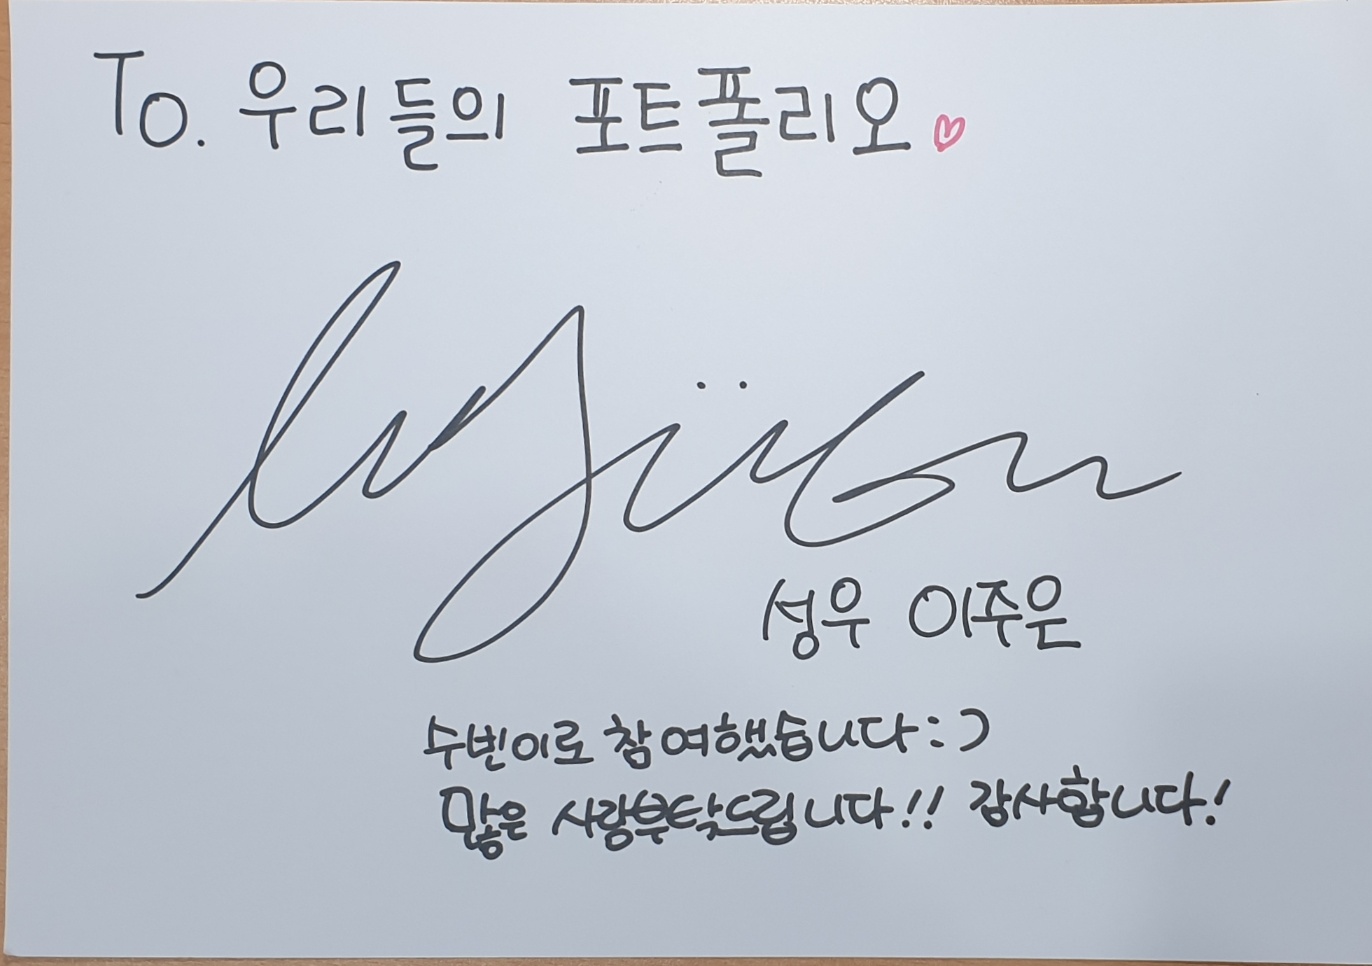 To. 우리들의 포트폴리오♡
성우 이주은
수빈이로 참여했습니다:)
많은 사랑부탁드립니다!! 감사합니다!